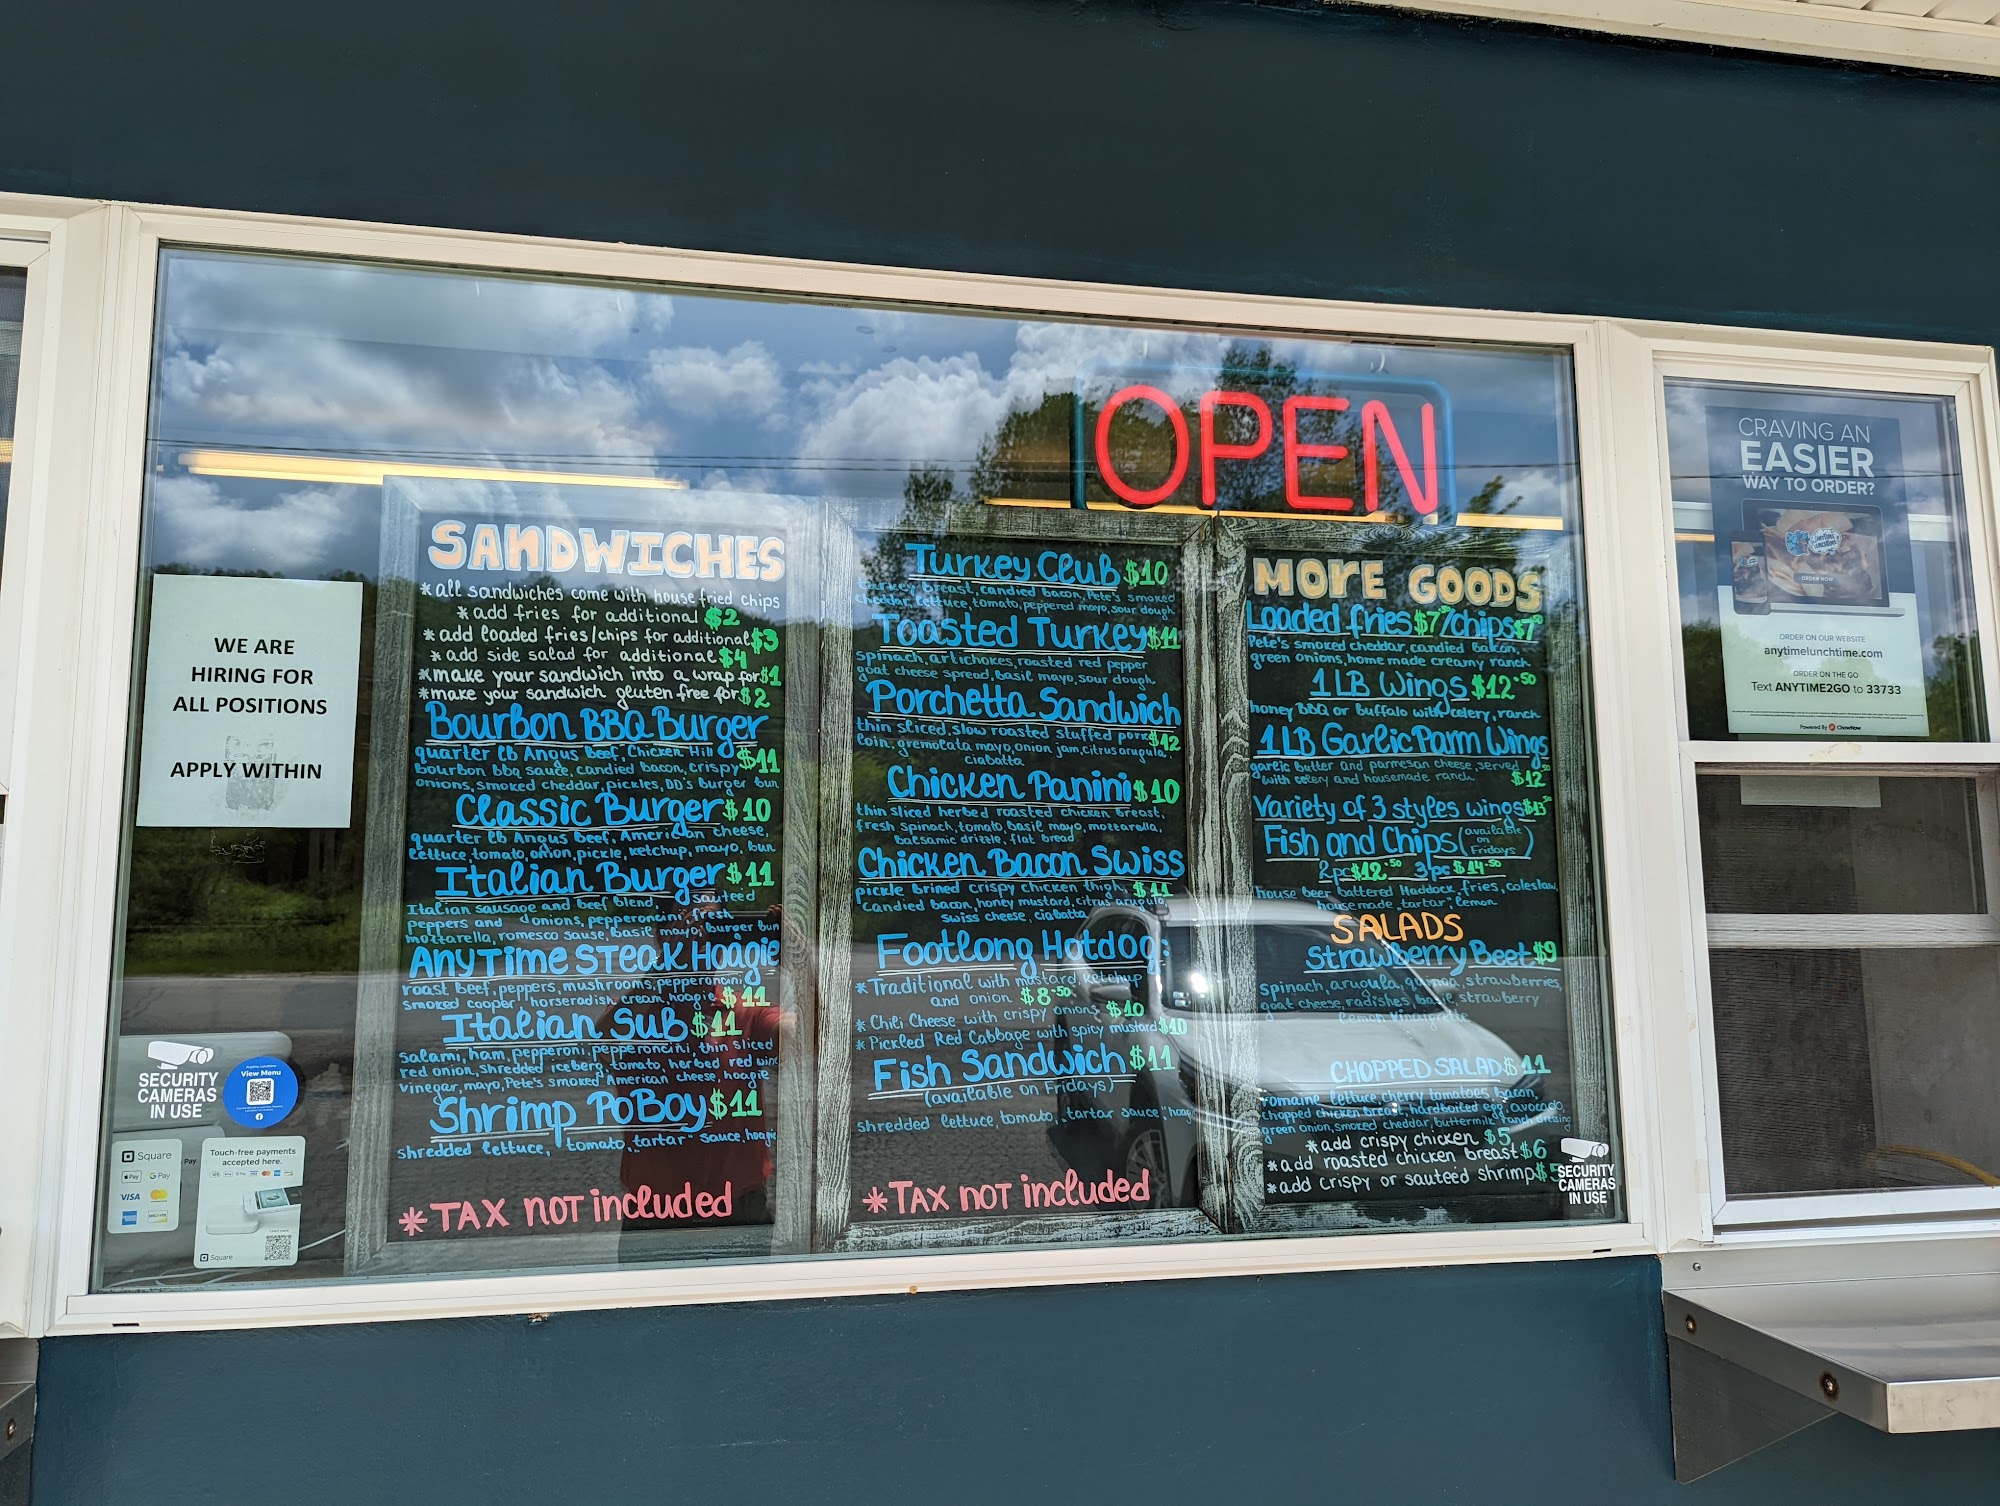 OPEN
WE ARE
HIRING FOR
ALL POSITIONS
APPLY WITHIN
SECURITY
CAMERAS
IN USE
View Menu
Square
Pay
G Pay
VISA
Touch-free payments
accepted here.
Square
SANDWICHES
*all sandwiches come with house fried chips
*add fries for additional $2
*add loaded fries/chips for additional $3
*add side salad for additional $4
*make your sandwich into a wrap for $1
*make your sandwich gluten free for $2
Bourbon BBQ Burger
quarter lb Angus Beef, Chicken Hill $11
bourbon bbq sauce, candied bacon, crispy
onions, smoked cheddar, pickles, DD's burger bun
Classic Burger $10
quarter lb Angus Beef, American cheese,
lettuce, tomato, onion, pickle, ketchup, mayo, bun
Italian Burger $11
Italian sausage and beef blend, sauteed
peppers and onions, pepperoncini, fresh
mozzarella, romesco sause, basil mayo, burger bun
AnyTime STEAK Hoagie
roast beef, peppers, mushrooms, pepperoncini,
smoked cooper, horseradish cream, hoagie $11
Italian Sub $11
salami, ham, pepperoni, pepperoncini, thin sliced
red onion, shredded iceberg, tomato, herbed red wine
vinegar, mayo, Pete's smoked American cheese, hoagie
Shrimp PoBoy $11
shredded lettuce, tomato, "tartar" sauce, hoagie
*TAX NOT included
Turkey Club $10
turkey breast, candied bacon, Pete's smoked
cheddar, lettuce, tomato, peppered mayo, sour dough
Toasted Turkey $11
spinach, artichokes, roasted red pepper
goat cheese spread, basil mayo, sour dough
Porchetta Sandwich
thin sliced, slow roasted stuffed pork $12
loin, gremolata mayo, onion jam, citrus arugula,
ciabatta
Chicken Panini $10
thin sliced herbed roasted chicken breast,
fresh spinach, tomato, basil mayo, mozzarella,
balsamic drizzle, flat bread
Chicken Bacon Swiss
pickle brined crispy chicken thigh, $11
candied bacon, honey mustard, citrus arugula,
swiss cheese, ciabatta
Footlong Hotdog:
*Traditional with mustard, ketchup
and onion $8.50
*Chili Cheese with crispy onions $10
*Pickled Red Cabbage with spicy mustard $10
Fish Sandwich $11
(available on Fridays)
shredded lettuce, tomato, "tartar sauce"
*TAX NOT included
MORE GOODS
Loaded fries $7.50/chips $7.50
Pete's smoked cheddar, candied bacon,
green onions, home made creamy ranch
1 LB Wings $12.50
honey BBQ or buffalo with celery, ranch
1 LB Garlic Parm Wings
garlic butter and parmesan cheese, served
with celery and housemade ranch $12.50
Variety of 3 styles wings $13.50
Fish and Chips (available on Fridays)
2pc $12.50 3pc $14.50
house beer battered Haddock, fries, coleslaw,
housemade "tartar", lemon
SALADS
Strawberry Beet $9
spinach, arugula, quinoa, strawberries,
goat cheese, radishes, basil, strawberry
lemon vinaigrette
CHOPPED SALAD $11
romaine lettuce, cherry tomatoes, bacon,
chopped chicken breast, hardboiled egg, avocado,
green onion, smoked cheddar, buttermilk ranch dressing
*add crispy chicken $5
*add roasted chicken breast $6
*add crispy or sauteed shrimp $5
SECURITY
CAMERAS
IN USE
CRAVING AN
EASIER
WAY TO ORDER?
ORDER NOW
ORDER ON OUR WEBSITE
anytimelunchtime.com
ORDER ON THE GO
Text ANYTIME2GO to 33733
Powered By ChowNow